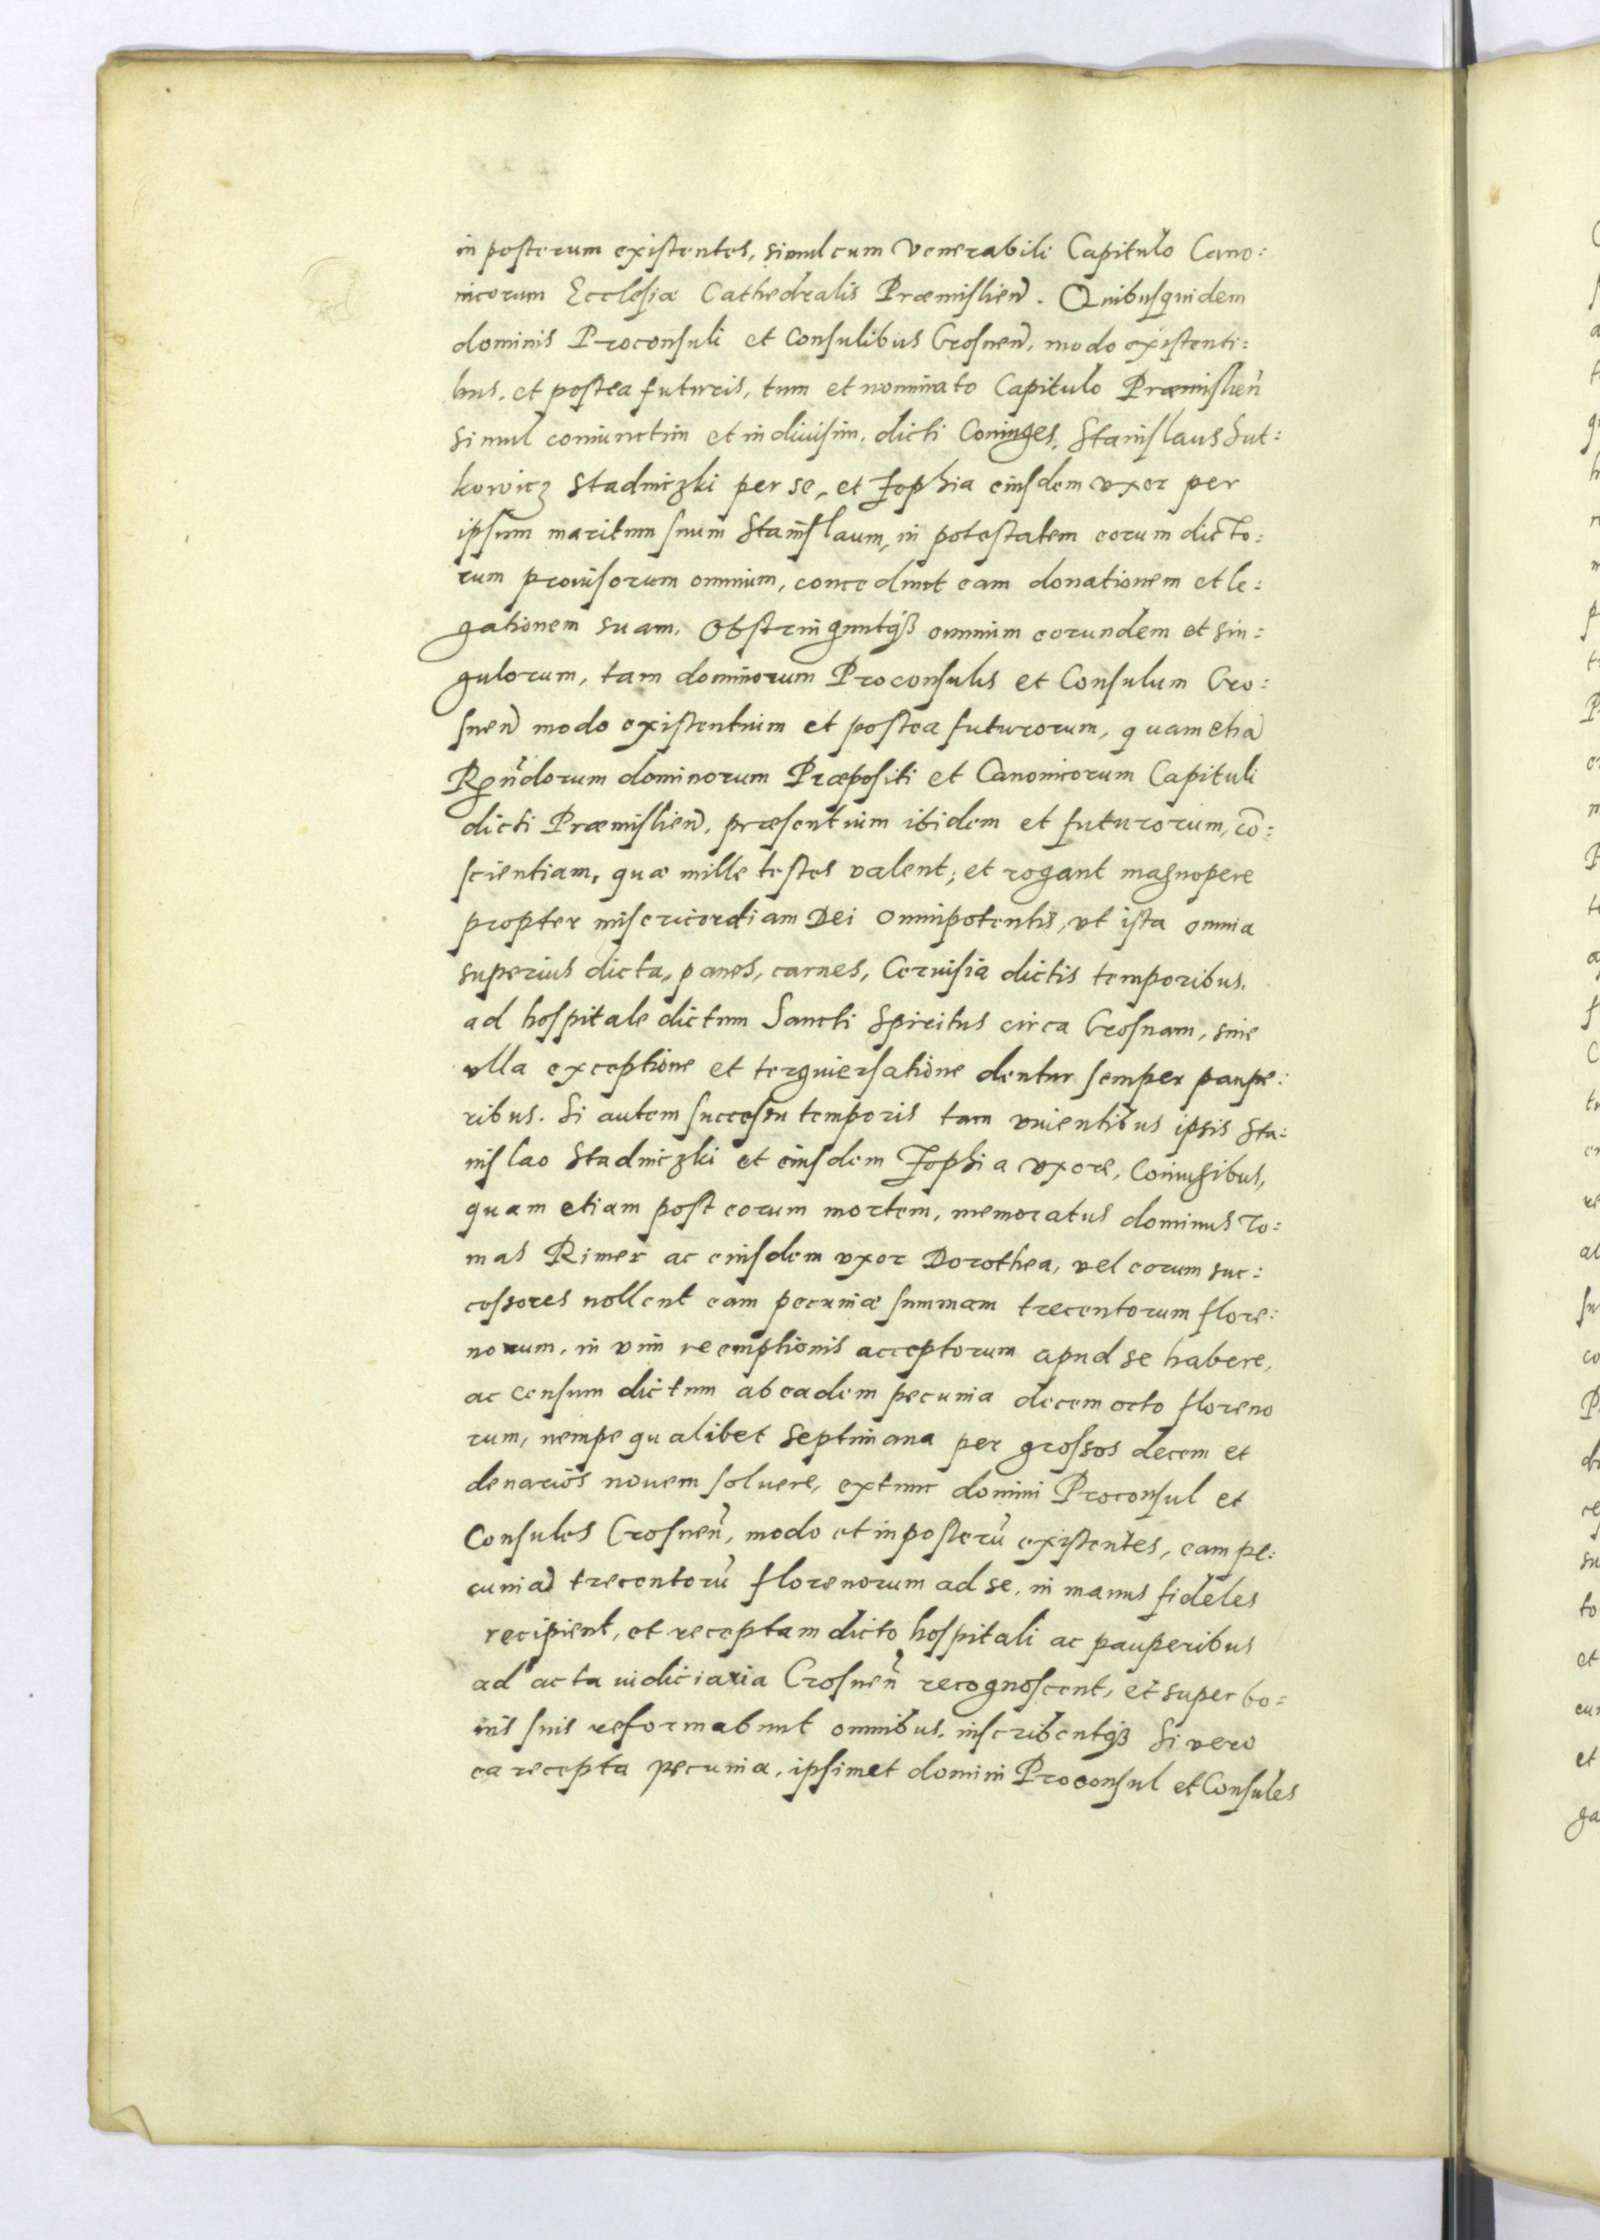 in posterum existentes, simul cum Venerabili Capitulo Cano:
nicorum Ecclesiæ Cathedralis Præmislien̄. Quibusquidem
dominis Proconsuli et Consulibus Crosnen̄, modo existenti:
bus, et postea futuris, tum et nominato Capitulo Præmislien̄
simul coniunctim et indiuisim, dicti Coniuges, Stanislaus Sut:
kowicz Stadniczki per se, et Zophia eiusdem vxor per
ipsum maritum suum Stanislaum, in potestatem eorum dicto:
rum prouisorum omnium, concedunt eam donationem et le:
gationem suam. Obstringuntq́ꝫ omnium eorundem et sin:
gulorum, tam dominorum Proconsulis et Consulum Cro:
snen̄ modo existentium et postea futurorum, quam etiā
Rn̄dorum dominorum Præpositi et Canonicorum Capituli
dicti Præmislien̄, præsentium ibidem et futurorum, cō:
scientiam, quæ mille testes valent; et rogant magnopere
propter misericordiam Dei Omnipotentis, vt ista omnia
superius dicta, panes, carnes, Ceruisia dictis temporibus,
ad hospitale dictum Sancti Spiritus circa Crosnam, sine
vlla exceptione et terguiersatione dentur semper paupe:
ribus. Si autem successu temporis tam viuentibus ipsis Sta:
nislao Stadniczki et eiusdem Zophia vxore, Coniugibus,
quam etiam post eorum mortem, memoratus dominus To:
mas Rimer ac eiusdem vxor Dorothea, vel eorum suc:
cessores nollent eam pecuniæ summam trecentorum flore:
norum, in vim reemptionis acceptorum apud se habere,
ac Censum dictum ab eadem pecunia decem octo floreno
rum, nempe qualibet septimana per grossos decem et
denarios nouem soluere, extunc domini Proconsul et
Consules Crosnen̄, modo et in posterū existentes, eam pe:
cuniā trecentorū florenorum ad se, in manus fideles
recipient, et receptam dicto hospitali ac pauperibus
ad acta iudiciaria Crosnen̄ recognoscent, et super bo:
nis suis reformabunt omnibus, inscribentq́ꝫ Si vero
ea recepta pecunia, ipsimet domini Proconsul et Consules